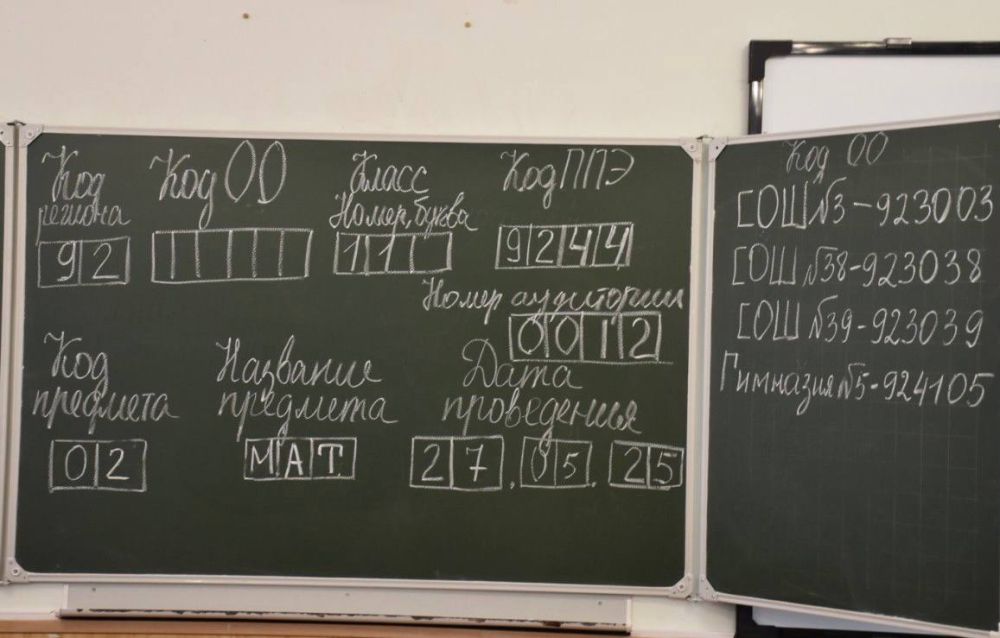 Код региона
92
Код ОО
Класс
Номер, буква
11
Код ППЭ
9244
Номер аудитории
0012
Код предмета
02
Название предмета
МАТ
Дата проведения
27.05.25
Код ОО
СОШ №3-923003
СОШ №38-923038
СОШ №39-923039
Гимназия №5-924105